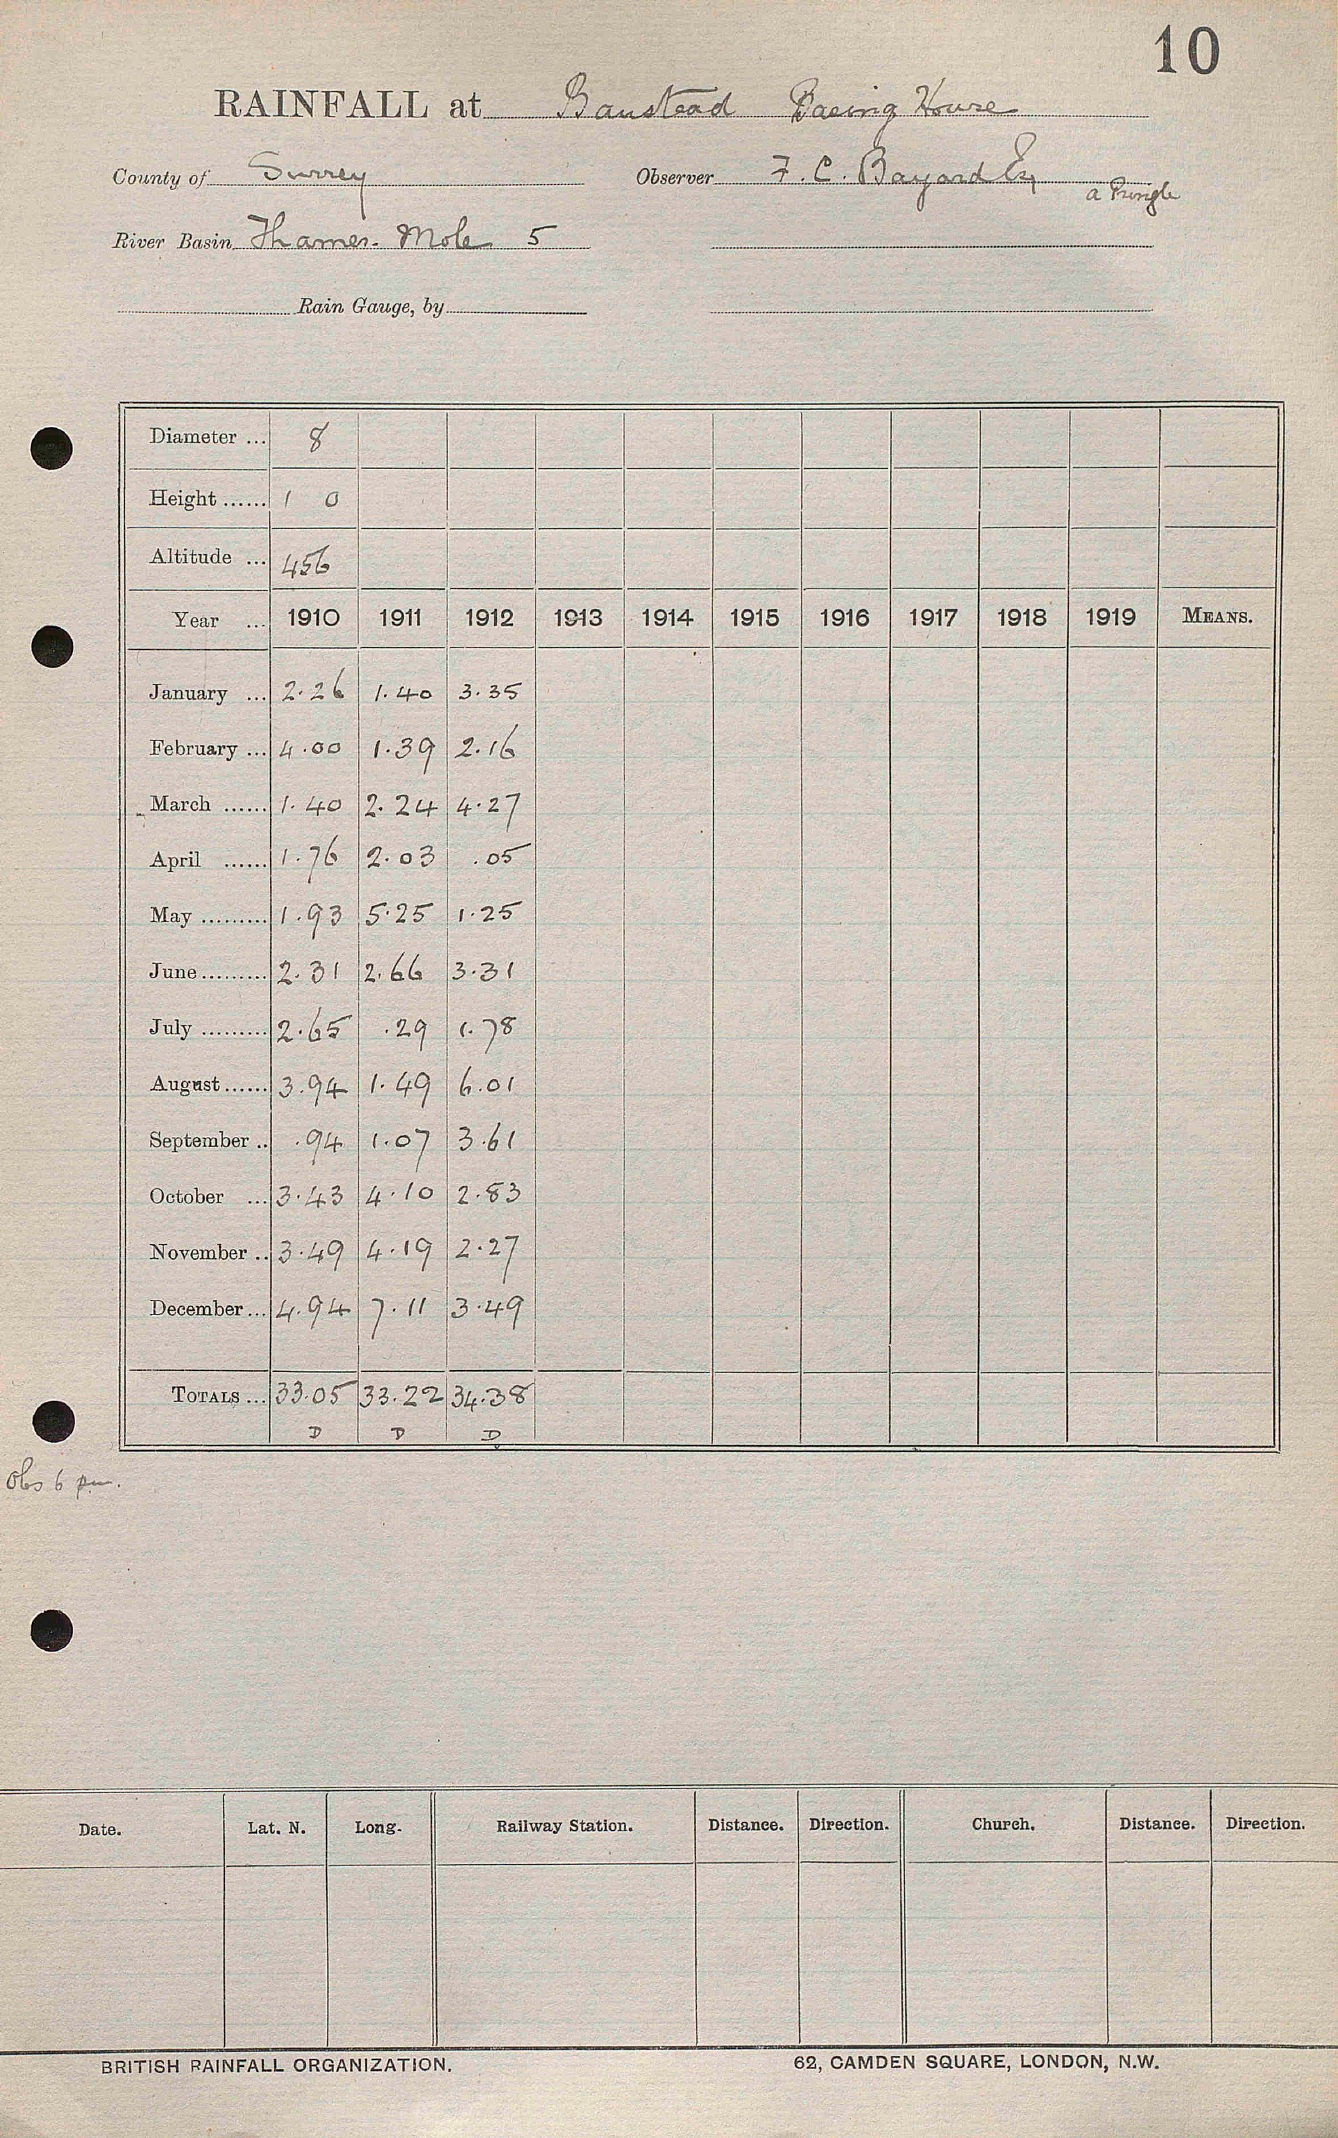 10
RAINFALL at Banstead Basing House
County of Surrey Observer F. C. Bayard Esq
a Pringle
River Basin Thames. Mole 5
Rain Gauge, by
Diameter ... 8
Height ...... 1 0
Altitude ... 456
Year ... 1910 1911 1912 1913 1914 1915 1916 1917 1918 1919 MEANS.
January ... 2.26 1.40 3.35
February ... 4.00 1.39 2.16
March ...... 1.40 2.24 4.27
April ...... 1.76 2.03 .05
May ......... 1.93 5.25 1.25
June ......... 2.31 2.66 3.31
July ......... 2.65 .29 1.78
August ...... 3.94 1.49 6.01
September .. .94 1.07 3.61
October ... 3.43 4.10 2.83
November .. 3.49 4.19 2.27
December ... 4.94 7.11 3.49
TOTALS ... 33.05 33.22 34.38
D D D
Obs 6 pm.
Date. Lat. N. Long. Railway Station. Distance. Direction. Church. Distance. Direction.
BRITISH RAINFALL ORGANIZATION. 62, CAMDEN SQUARE, LONDON, N.W.